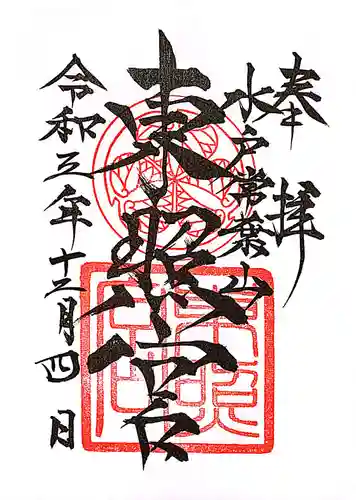 奉拝
水戸常葉山
東照宮
令和五年十二月四日
東照
宮印